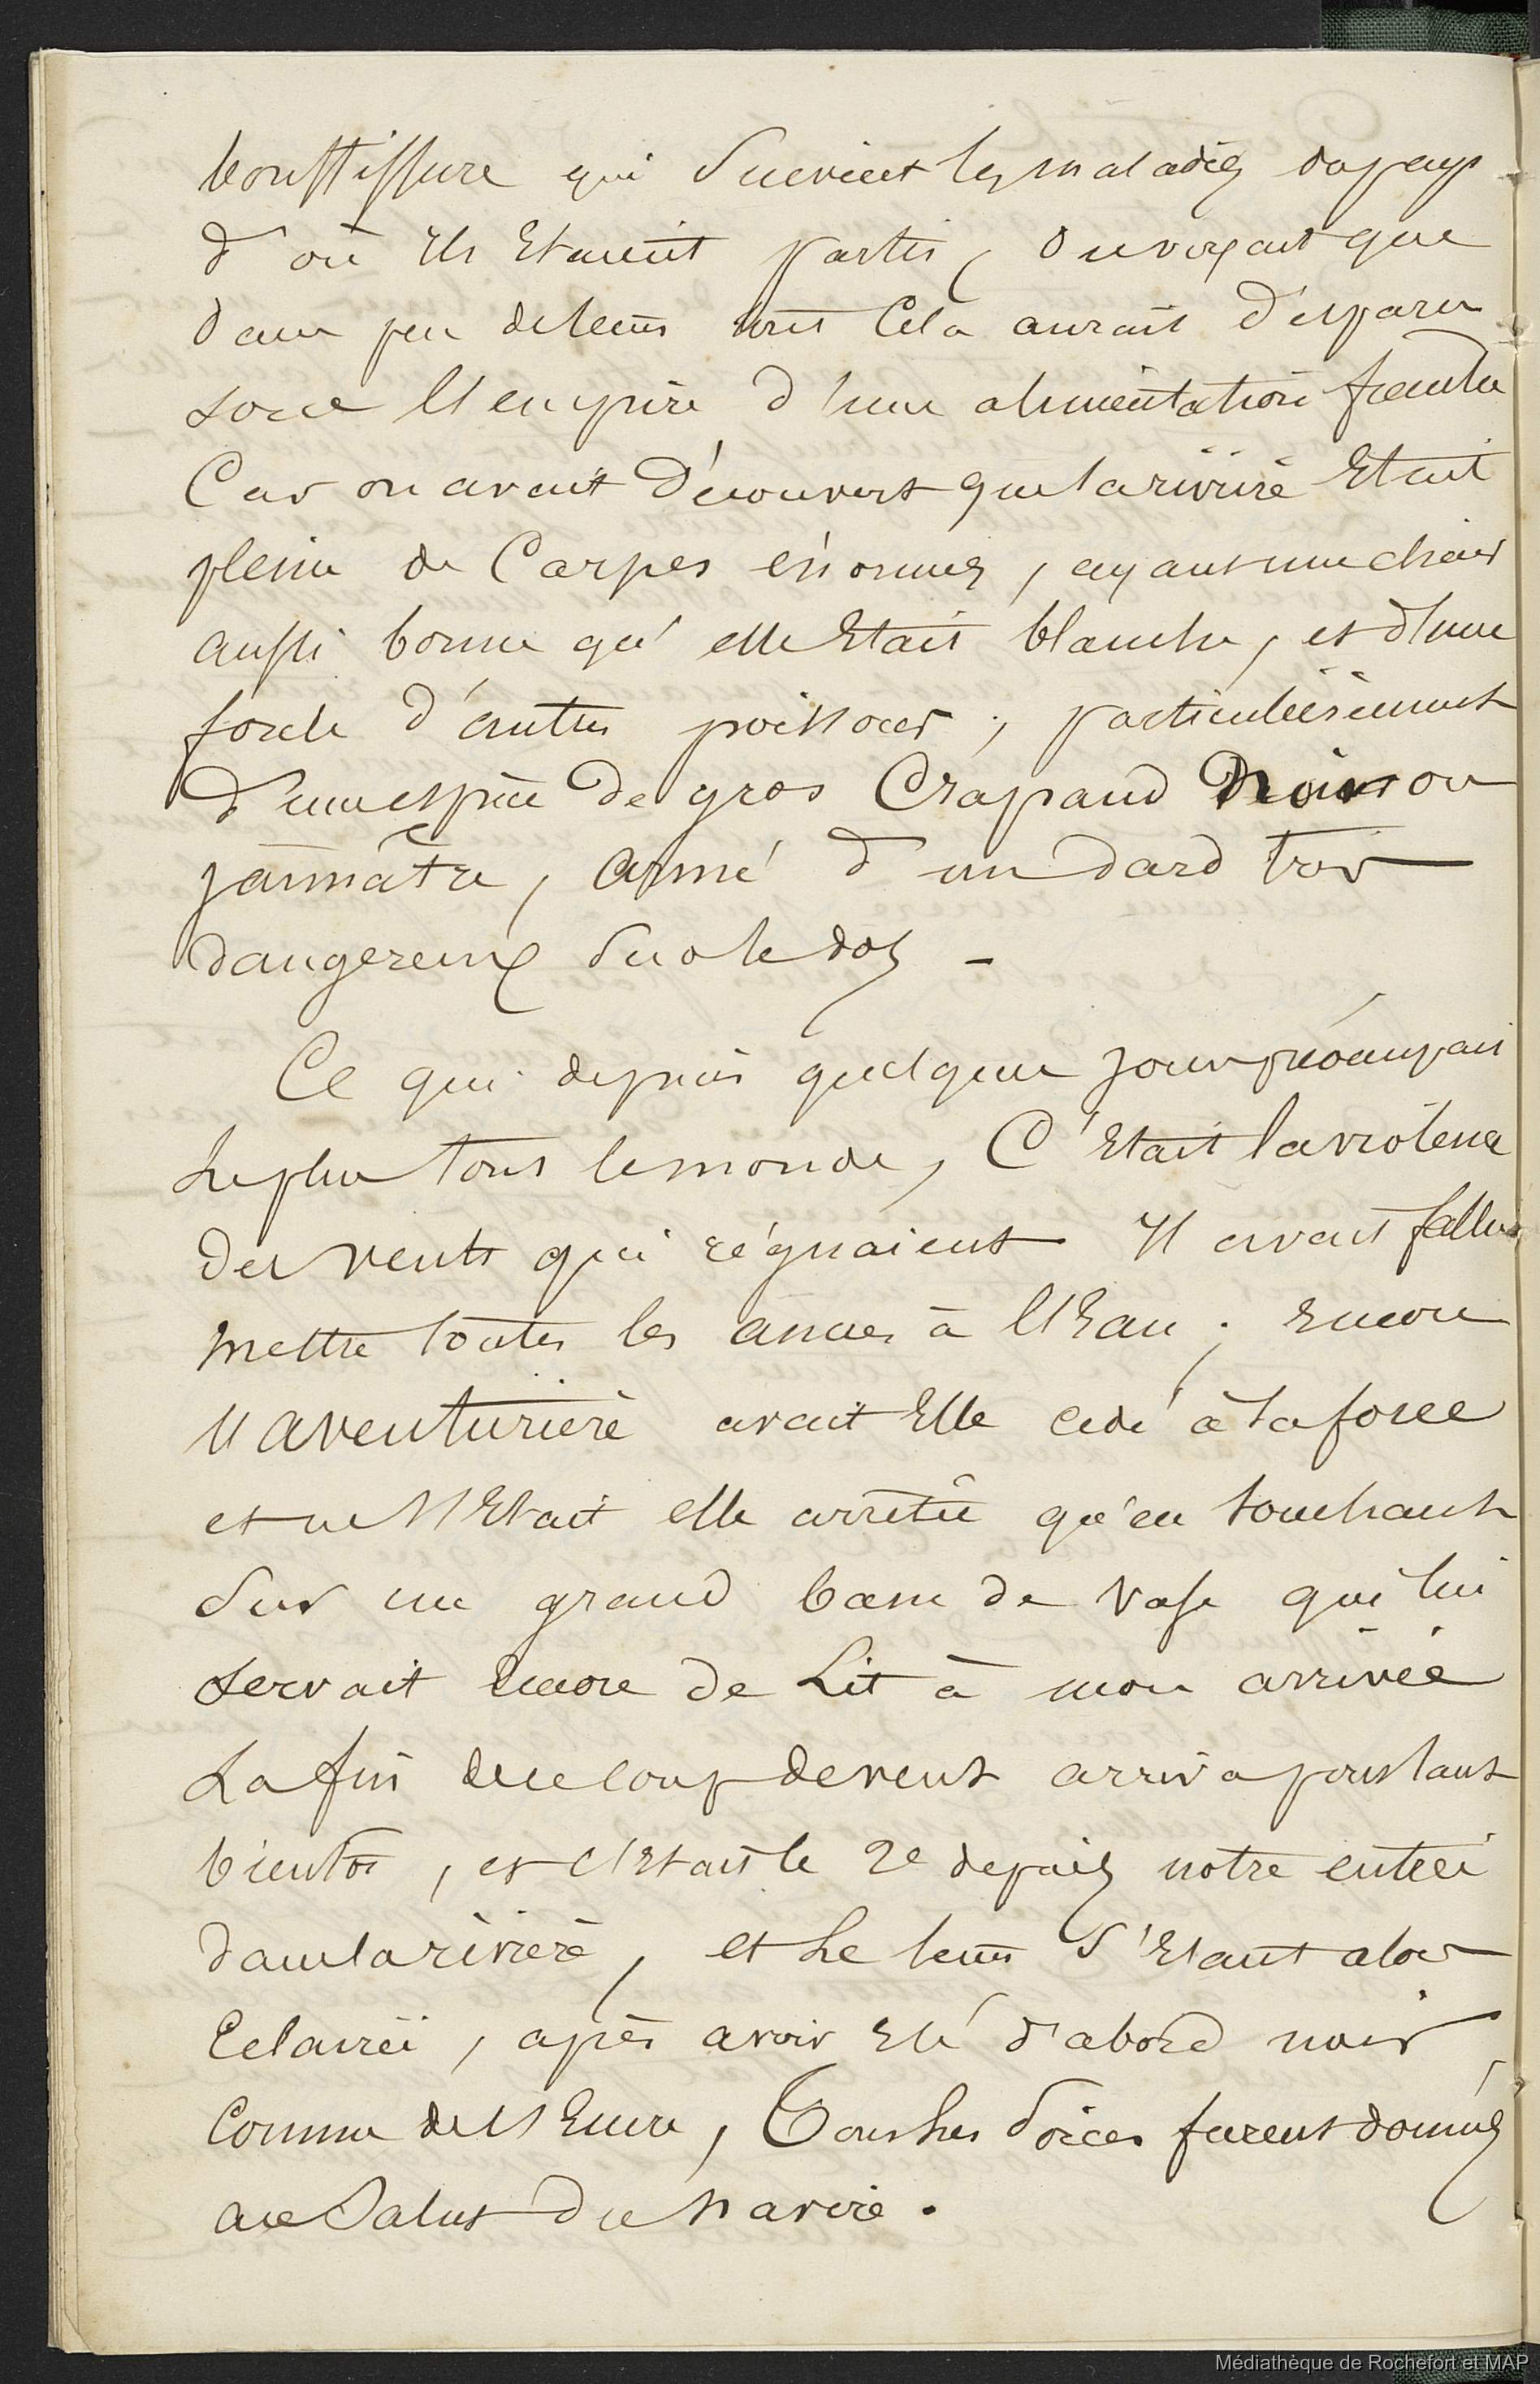 bouffissure qui suivient les maladies du pays
d'où ils étaient partis, on voyait que
dans peu de tems tout cela aurait disparu
sous l'empire d'une alimentation fraiche
Car on avait découvert que la rivière était
pleine de Carpes énormes, ayant une chair
aussi bonne qu'elle était blanche, et d'une
foule d'autres poissons ; particulièrement
d'une espèce de gros Crapaud Noir ou
jaunâtre, armé d'un dard très
dangereux sur le dos -
Ce qui depuis quelques jours préoccupait
le plus tout le monde, C'était la violence
des vents qui régnaient Il avait fallu
mettre toutes les ancres à l'Eau ; encore
l'aventurière avait Elle cédé à la force
et ne s'était elle arrêtée qu'en touchant
sur un grand banc de vase qui lui
servait encore de Lit à mon arrivée
La fin du coup de vent arriva pourtant
bientôt, et c'était le 2e depuis notre entrée
dans la rivière, et le tems s'étant alors
Eclairci, après avoir été d'abord noir
Comme de l'Encre, Tous les soins furent donnés
au Salut du navire.
Médiathèque de Rochefort et MAP